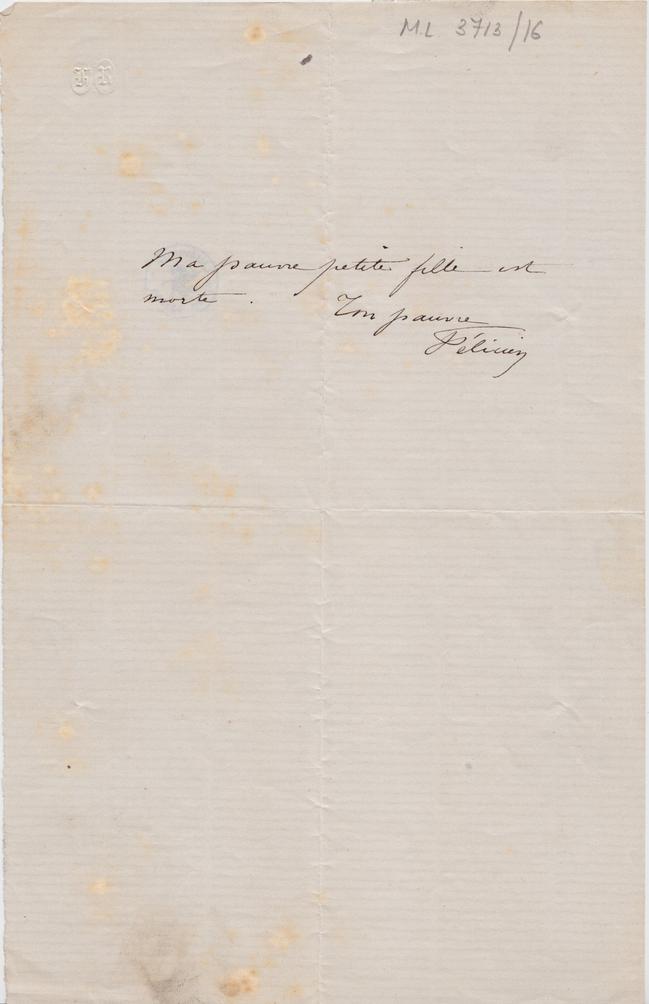 ML 3713/16
FR
Ma pauvre petite fille est
morte. Ton pauvre
Félicien